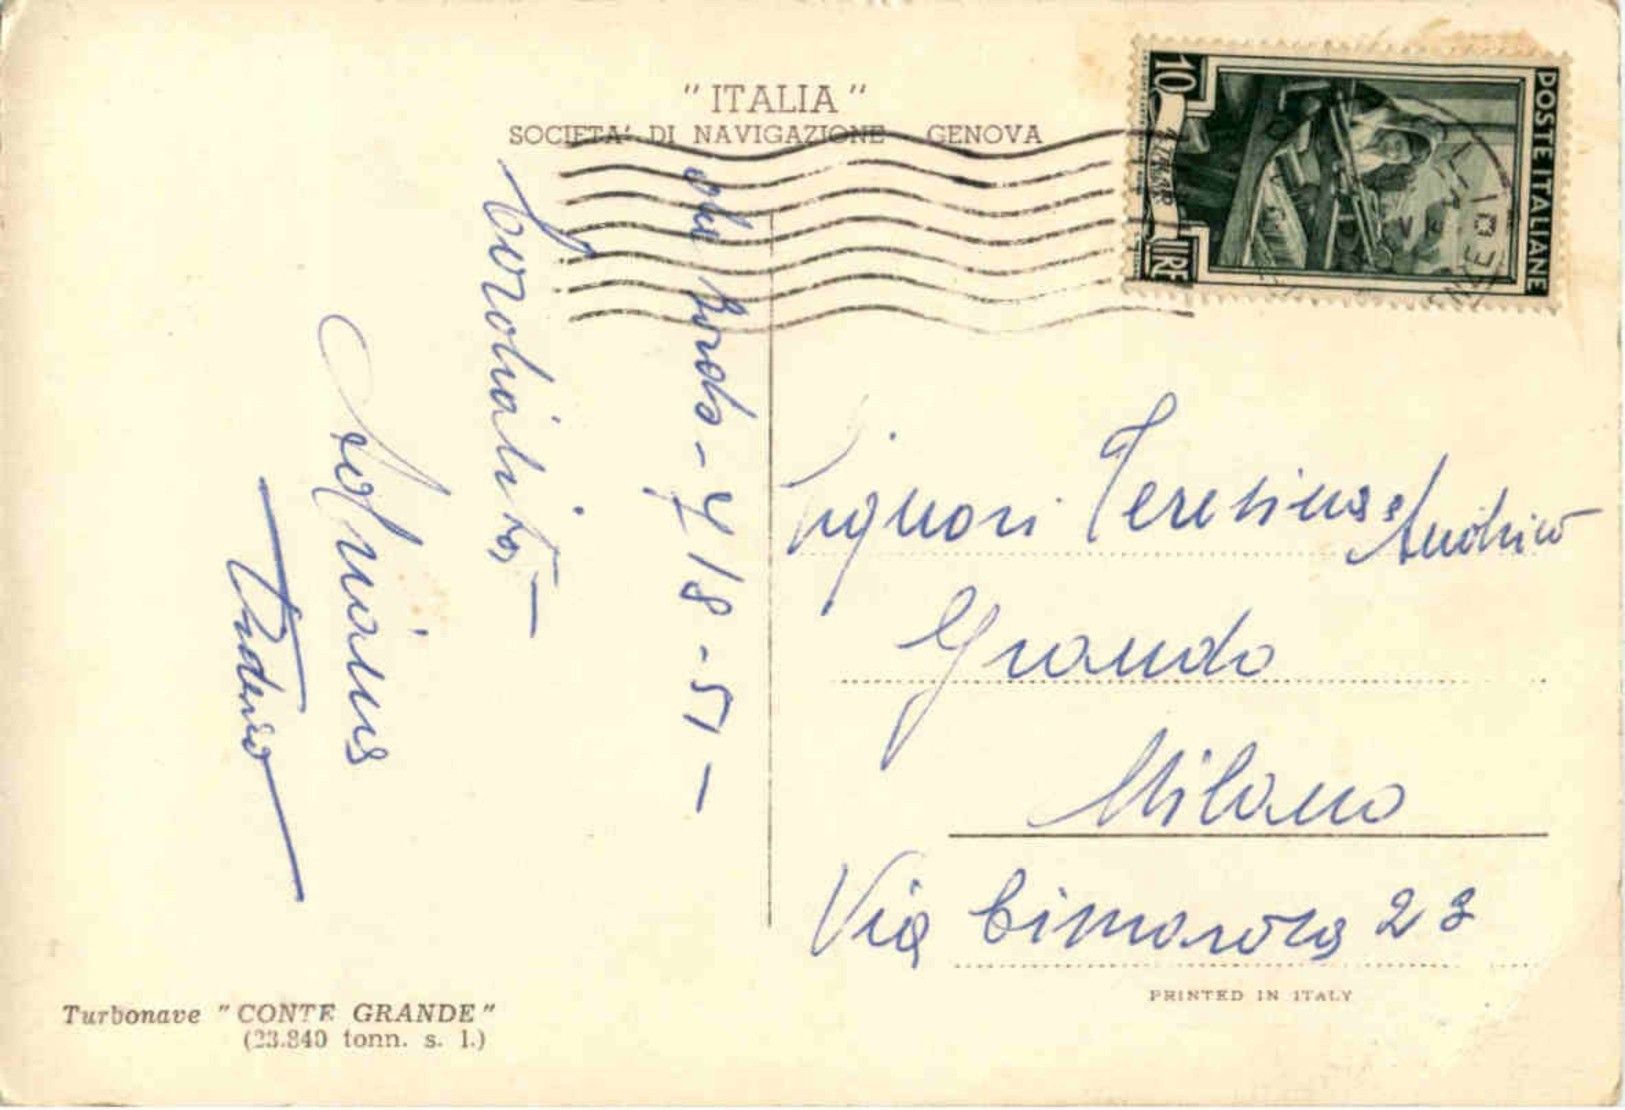 "ITALIA"
SOCIETA' DI NAVIGAZIONE - GENOVA
10
LIRE
POSTE ITALIANE
da bordo - 4/8-51-
Cordialità -
Signori Teresina e
Grando
Milano
Via Cimarosa 23
Turbonave "CONTE GRANDE"
(23.840 tonn. s. l.)
PRINTED IN ITALY